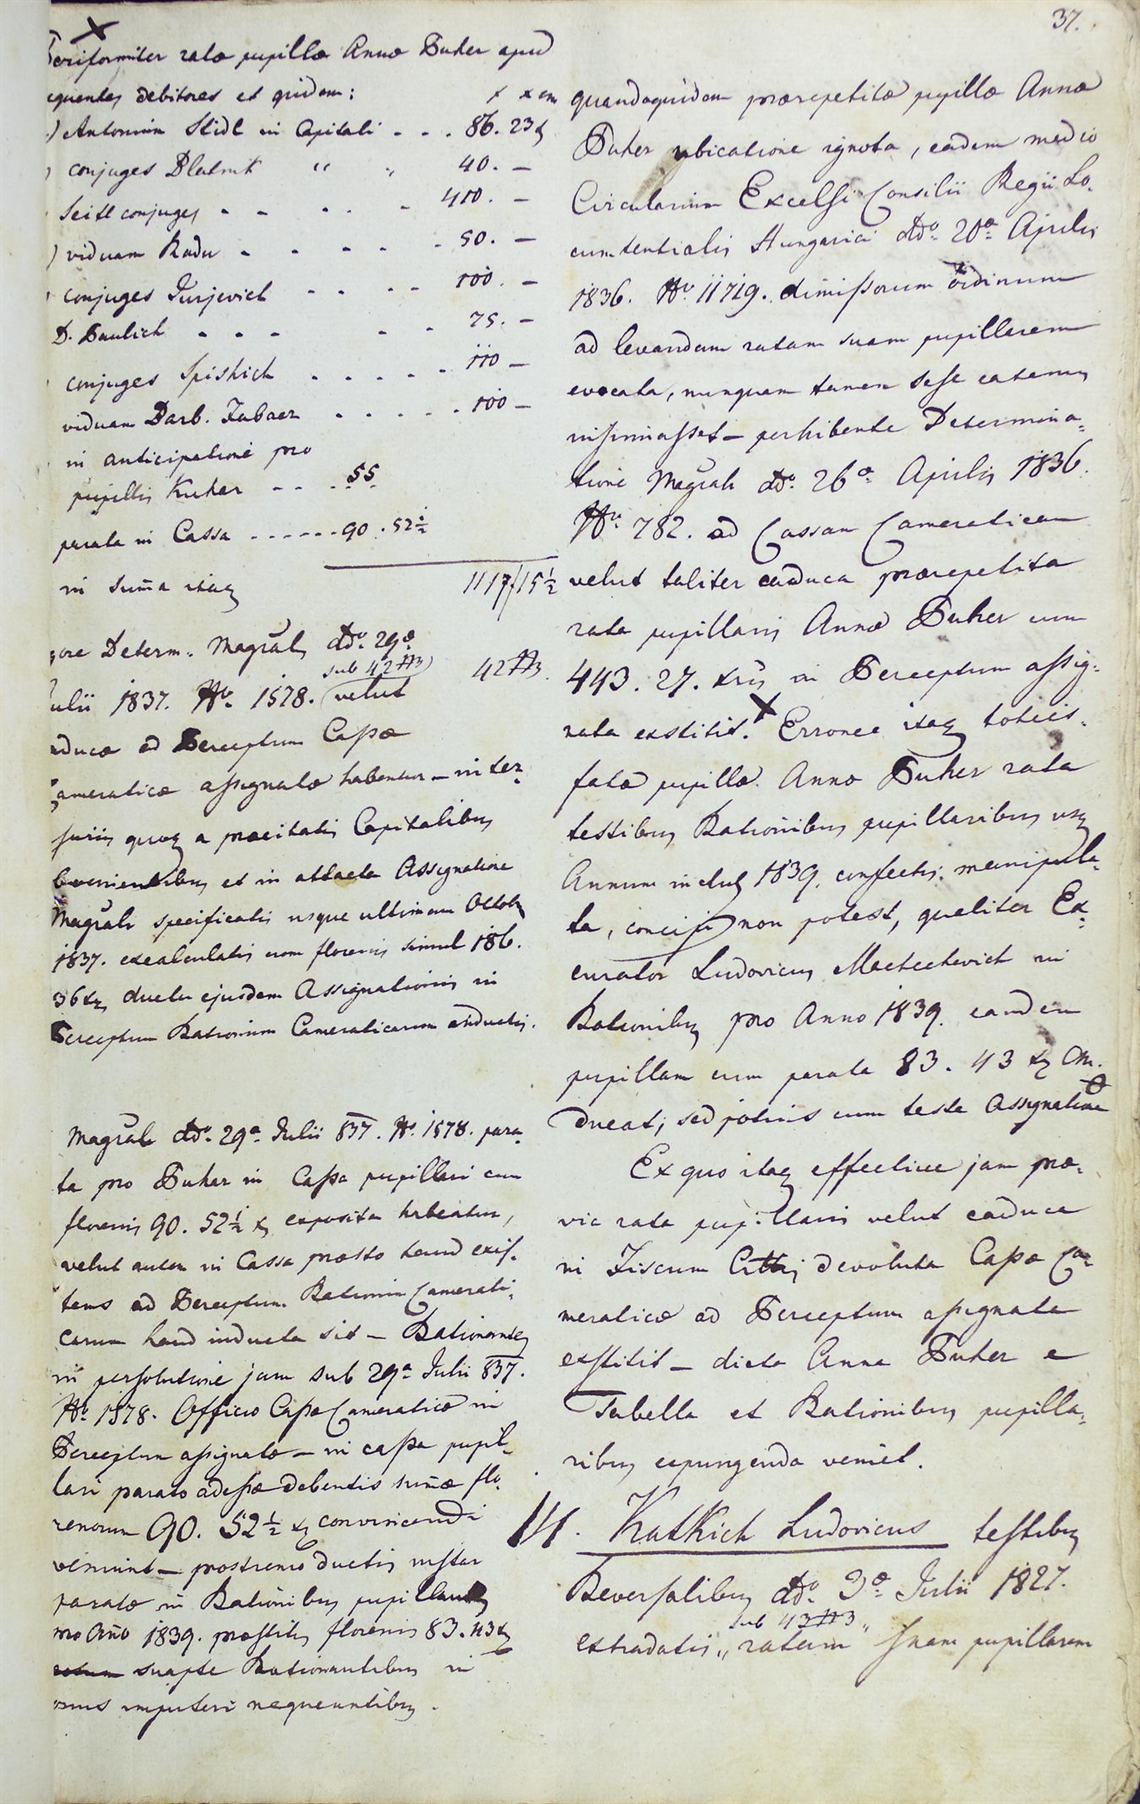 37.
X
riformiter rata pupillæ Annæ Puher apud
equentes debitores et quidem: f xr cm
Antonium Stidl in Capitali - - . 86. 23 x
conjuges Dlatnit " " 40. —
Seitl conjuges - - . . - 410. —
) viduam Radu - - - - - 50. —
conjuges Jurjevich - - - - 100. —
D. Paulich - - - - - 75. —
conjuges Spishich . - . - . 110 —
viduam Barb. Tabaer . . . . . 100 —
in anticipatione pro
pupillis Kuher - - . 55
parata in Cassa - - - - - - 90 . 52½
in suma itaq 1117/15½
gore Determ. Magral ddo. 29a
sub 42 ##3)
ulii 1837. No. 1578. velut 42 ##3.
aducæ ad Perceptum Cassæ
ameraticæ assignatæ habentur — inter-
suriis quoq a præcitatis Capitalibus
bvenientibus et in attacta Assignatione
Magrali specificatis usque ultimam Octob
1837. excalculatis cum florenis simul 186.
36 xr, ductu ejusdem Assignationis in
Perceptum Rationum Cameraticarum inductis.
Magrali ddo. 29a Julii 837. No. 1578. para-
ta pro Puher in Cassa pupillari cum
florenis 90. 52½ x exposita habeatur,
velut autem in Cassa præsto haud exis-
tens ad Perceptum Rationum Camerati-
carum haud inducta sit — Rationantes
in persolutione jam sub 29a Julii 837.
No. 1578. Officio Cassæ Cameraticæ in
Perceptum assignatæ — in cassa pupil-
lari parato adesse debentis sumæ flo-
renorum 90. 52½ x convincendi
veniunt — postremo ductis instar
paratæ in Rationibus pupillarib
pro Año 1839. præstitis florenis 83. 43 x
suapte Rationantibus in
onus imputari nequeuntibus.
quandoquidem præpetita pupilla Anna
Puher ubicatione ignota, eadem medio
Circularium Excelsi Consilii Regii Lo-
cumtentialis Hungarici ddo. 20a Aprilis
1836. No. 11719. dimissorum ordinum
ad levandam ratam suam pupillarem
evocata, nunquam tamen sese eatenus
insinuasset — perhibente Determina-
tione Magrali ddo. 26a Aprilis 1836.
No. 782. ad Cassam Cameraticam
velut taliter caduca præpetita
rata pupillaris Annæ Puher cum
443. 27. xris in Perceptum assig-
nata exstitit. X Erronee itaq toties-
fatæ pupillæ Annæ Puher rata
testibus Rationibus pupillaribus usq
Annum inclus 1839. confectis manipula-
ta, concipi non potest, qualiter Ex-
curator Ludovicus Matetievich in
Rationibus pro Anno 1839. eandem
pupillam cum parata 83. 43 x CM.
ducat; sed potius cum teste Assignatione
Ex quo itaq effective jam præ-
via rata pupillaris velut caduca
in Fiscum Cittis devoluta Cassæ Ca-
meraticæ ad Perceptum assignata
exstitit — dicta Anna Puher e
Tabella et Rationibus pupilla-
ribus expungenda veniet.
14. Katkich Ludovicus testibus
Reversalibus ddo. 3a Julii 1827.
sub 43 ##3
extradatis „ ratam „ suam pupillarem